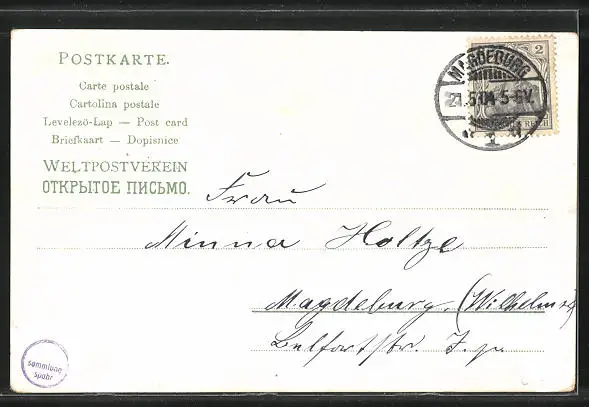 POSTKARTE.
Carte postale
Cartolina postale
Levelező-Lap — Post card
Briefkaart — Dopisnice
WELTPOSTVEREIN
ОТКРЫТОЕ ПИСЬМО.
2
REICH
MAGDEBURG
21.5.04 5-6V.
1
Frau
Minna Holtze
Magdeburg, (Wilhelmst
Belfortstr.
sammlung
spohr